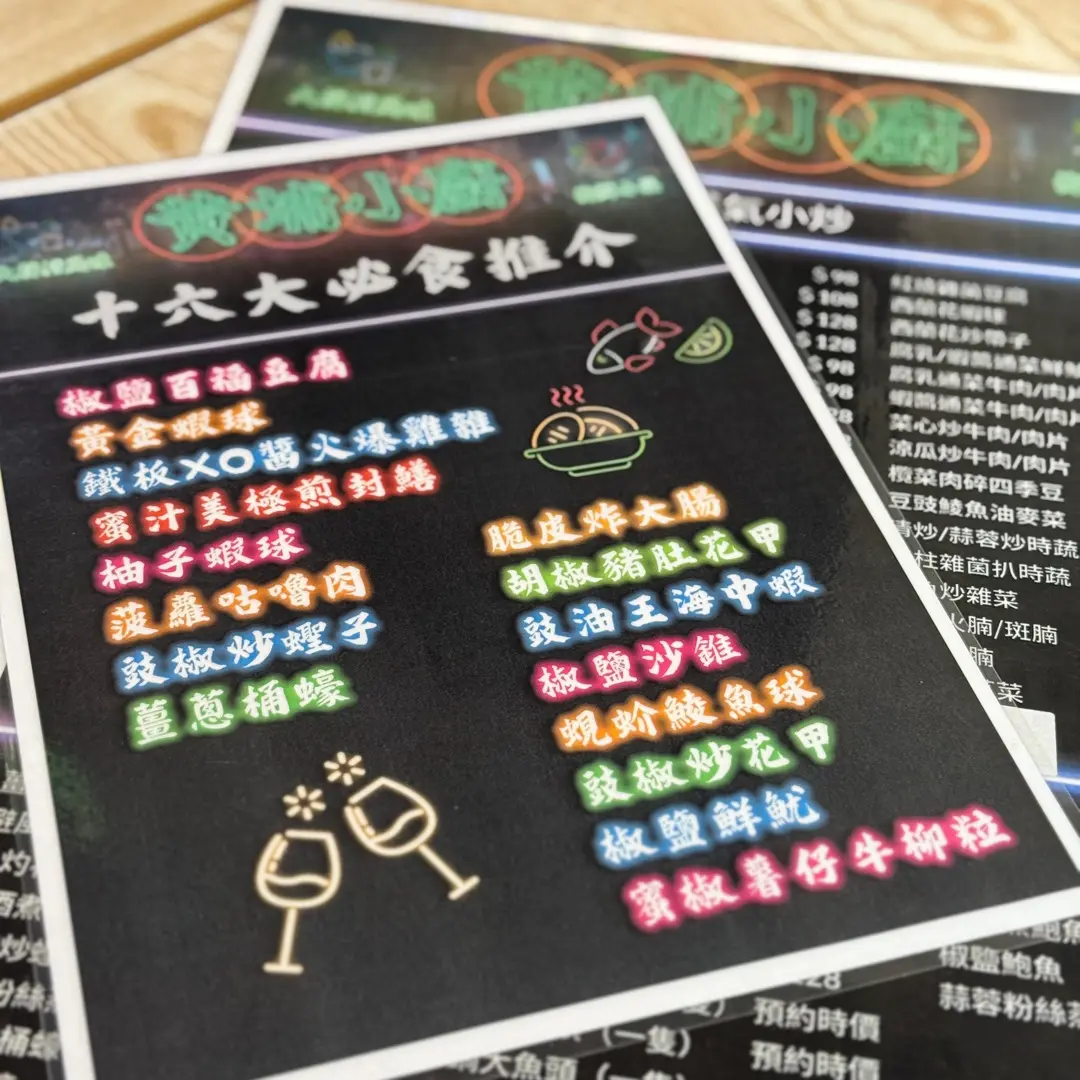 黃埔小廚
十六大必食推介
椒鹽百福豆腐
黃金蝦球
鐵板XO醬火爆雞雜
蜜汁美極煎封鱔
柚子蝦球
菠蘿咕嚕肉
豉椒炒蟶子
薑蔥桶蠔
脆皮炸大腸
胡椒豬肚花甲
豉油王海中蝦
椒鹽沙錐
蜆蚧鯪魚球
豉椒炒花甲
椒鹽鮮魷
蜜椒薯仔牛柳粒
小廚
氣小炒
$98
$108
西蘭花蝦球
$128
西蘭花炒帶子
$128
腐乳/蝦醬通菜鮮魷
$98
腐乳通菜牛肉/肉片
98
蝦醬通菜牛肉/肉片
28
菜心炒牛肉/肉片
涼瓜炒牛肉/肉片
欖菜肉碎四季豆
豆豉鯪魚油麥菜
清炒/蒜蓉炒時蔬
柱雜菌扒時蔬
炒雜菜
腩/斑腩
腩
菜
鮑魚
椒鹽鮑魚
28
蒜蓉粉絲蒸
預約時價
(一隻)
預約時價
大魚頭 (一隻)
灼
酒煮
炒
粉絲
桶蠔